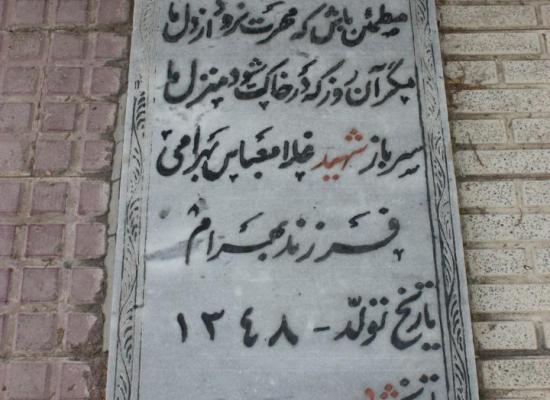 مطمئن باش که مهرت نرود از دل ما
مگر آن روز که در خاک شود منزل ما
سرباز شهید غلامعباس بهرامی
فرزند بهرام
تاریخ تولد - ۱۳۴۸
تاریخ